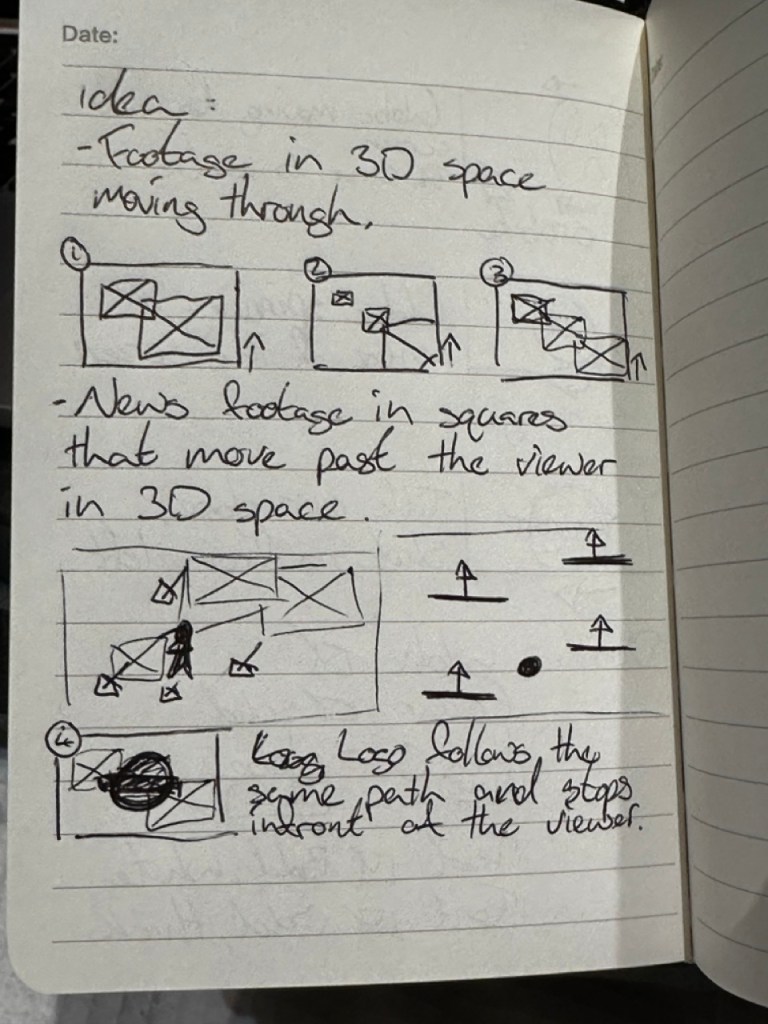 Date:
idea:
- Footage in 3D space
moving through.
1
2
3
- News footage in squares
that move past the viewer
in 3D space.
4
Logo follows the
same path and stops
infront of the viewer.